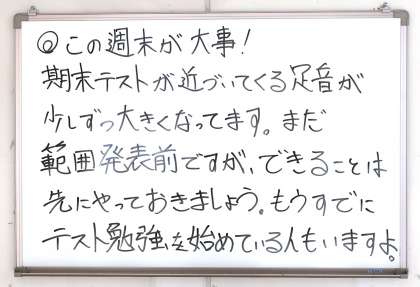 ◎この週末が大事!
期末テストが近づいてくる足音が
少しずつ大きくなってます。まだ
範囲発表前ですが、できることは
先にやっておきましょう。もうすでに
テスト勉強を始めている人もいますよ。